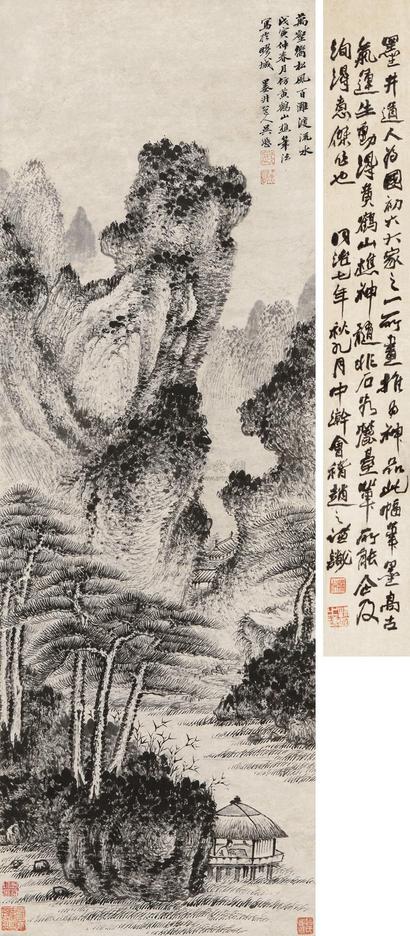 萬壑衝松風百灘渡流水
戊寅仲春月仿黃鶴山樵筆法
寫於疁城 墨井道人吳歷
墨井道人為國初六大家之一所畫推為神品此幅筆墨高古
氣運生動得黃鶴山樵神髓非石谷麓臺輩所能企及
洵得意傑作也
同治七年秋九月中澣會稽趙之謙識